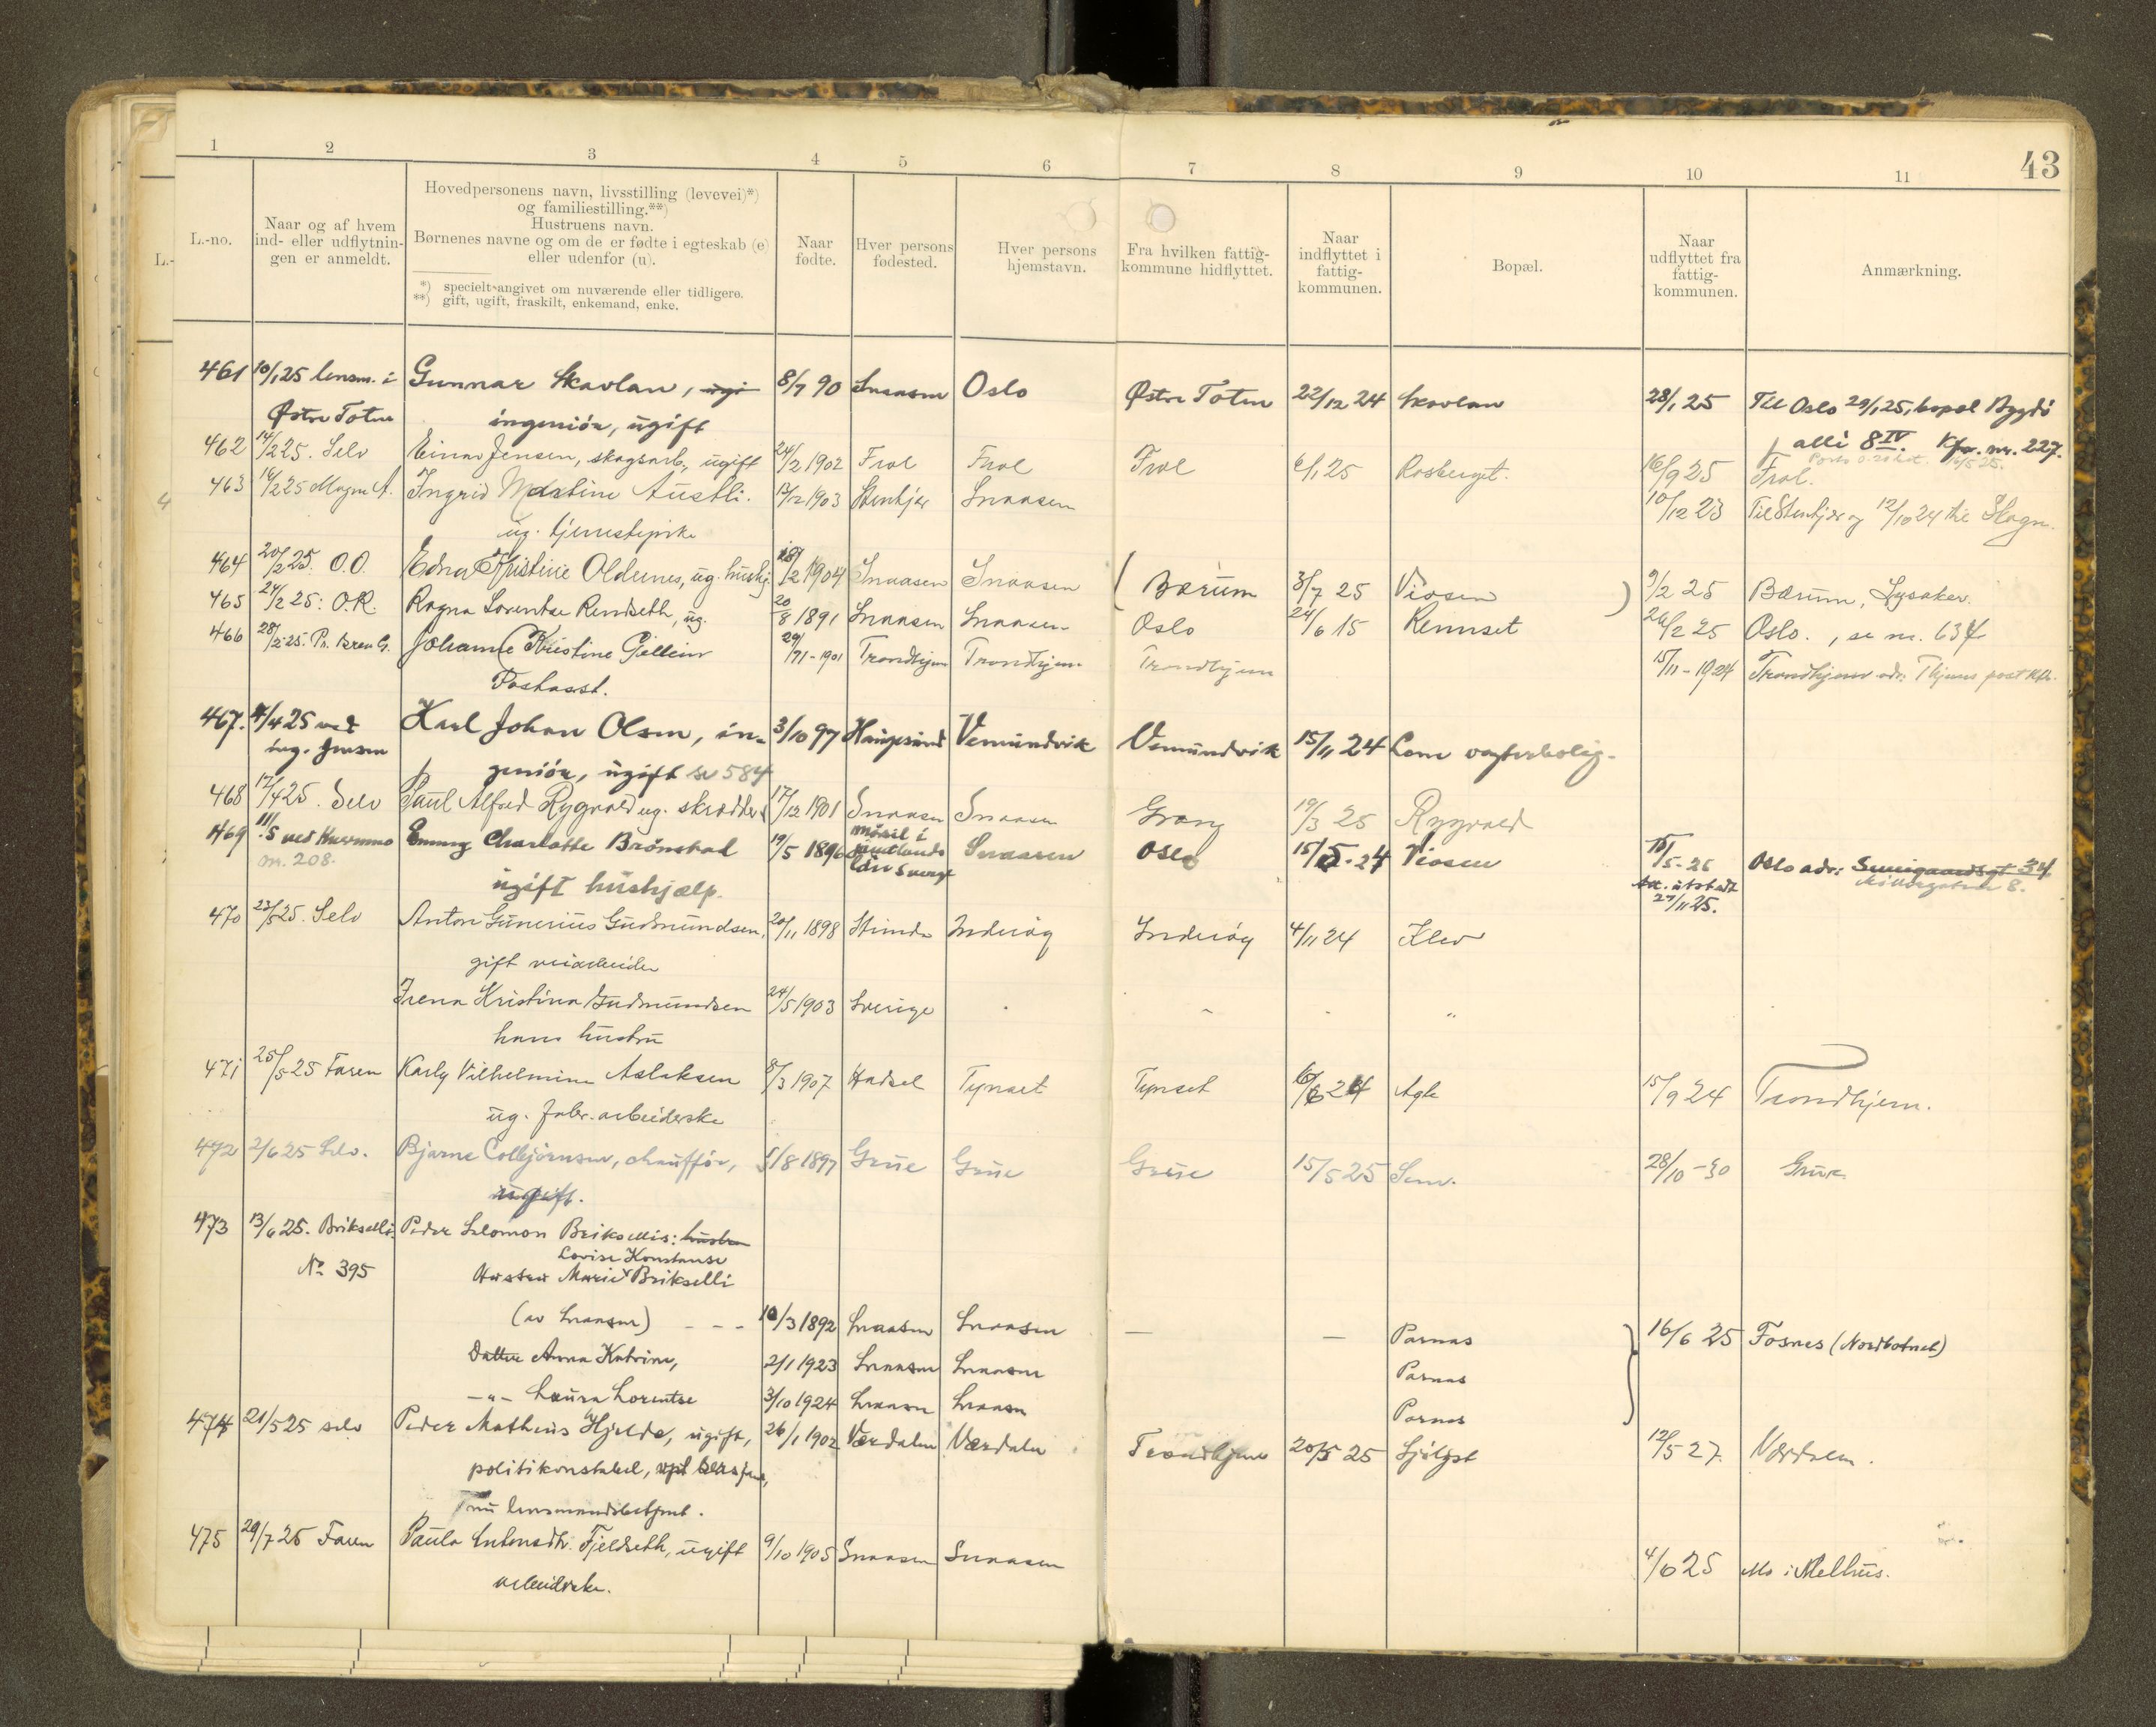 43
1 2 3 4 5 6 7 8 9 10 11
L.-no.
Naar og af hvem
ind- eller udflytnin-
gen er anmeldt.
Hovedpersonens navn, livsstilling (levevei)*)
og familiestilling.**)
Hustruens navn.
Børnenes navne og om de er fødte i egteskab (e)
eller udenfor (u).
*) specielt angivet om nuværende eller tidligere.
**) gift, ugift, fraskilt, enkemand, enke.
Naar
fødte.
Hver persons
fødested.
Hver persons
hjemstavn.
Fra hvilken fattig-
kommune hidflyttet.
Naar
indflyttet i
fattig-
kommunen.
Bopæl.
Naar
udflyttet fra
fattig-
kommunen.
Anmærkning.
L.-
461 10/1 25 lensm. i Gunnar Skavlan, 8/7 90 Snaasen Oslo Østre Toten 22/12 24 Skavlan 28/1 25 Til Oslo 29/1 25, bopæl Bygdö
Østre Toten ingeniör, ugift alle 8 IV. Kfr. nr. 227.
462 14/2 25. Selv Einar Jensen, skogsarb., ugift 24/2 1902 Frol Frol Frol 6/1 25 Rosberget. 16/9 25 Frol.
463 16/2 25 Magn A. Ingrid Martine Austli. 1903 Stenkjær Snaasen 10/12 23 Til Stenkjær og 12/10 24 til Skogn.
ug. tjenestepike
464 20/2 25. O.O. Edna Kristine Oldernes, ug. hushj. 18/2 1904 Snaasen Snaasen ( Bærum 3/7 25 Viosen ) 9/2 25 Bærum, Lysaker.
465 24/2 25: O.R. Ragna Lorentse Rendseth, ug. 20/8 1891 Snaasen Snaasen Oslo 24/6 15 Rennset 26/2 25 Oslo., se nr. 634
466 28/2 25. Johanne Kristine Gjellein 1901 Trondhjem Trondhjem Trondhjem 15/11-1924 Trondhjem adr. Thjems postktr.
Postasst.
467. 4/4 25 ved Karl Johan Olsen, in- 3/10 97 Haugesund Vemundvik Vemundvik 15/11 24 Lone vogterbolig.
ing. Jensen geniör, ugift se 584
468 17/4 25. Selv Paul Alfred Rygvold ug. skrædder 17/12 1901 Snaasen Snaasen Grong 19/3 25 Rygvold
469 11/5 ved Emmy Charlotte Brönstad 19/5 1896 Mörsil i Jämtlands län Sverge Snaasen Oslo 15/5-24 Viosen 15/5-25 Oslo adr: Sverigaardsgt 34
nr. 208. ugift hushjælp. Att. utstedt Möllergaten 8.
27/11 25.
470 23/5 25. Selv Anton Gunerius Gudmundsen, 20/11 1898 Strinda Inderøy Inderøy 4/11 24 Klev
gift veiarbeider
Irena Kristina Gudmundsen 24/5 1903 Sverige
hans hustru
471 25/5 25 Faren Karly Vilhelmine Aslaksen 8/3 1907 Hadsel Tynset Tynset 24 Agle 15/9 24 Trondhjem.
ug. fabr. arbeiderske
472 2/6 25 Selv. Bjarne Colbjörnsen, chauffør, 5/8 1897 Grue Grue Grue 15/5 25 Sem. 28/10-30 Grue
ugift.
473 13/6 25. Brikselli Peder Salomon Briksellis: hustru
Lovise Konstanse
No 395 Hustru Marie Brikselli
(av Snaasen) - - - 10/3 1892 Snaasen Snaasen — — Parnas 16/6 25 Fosnes (Nordbotnet)
Datter Anna Katrine, 2/1 1923 Snaasen Snaasen Parnas
-"- Laura Lorentse 3/10 1924 Snaasen Snaasen Parnas
474 21/5 25 selv Peder Matheus Hjelde, ugift, 26/1 1902 Værdalen Værdalen Trondhjem 20/5 25 Sjölyst 12/5 27. Værdalen.
politikonstabel,
nu lensmandsbetjent.
475 29/7 25 Faren Paula Antonsdtr. Fjeldseth, ugift 9/10 1905 Snaasen Snaasen 4/6 25 Mo i Melhus.
arbeiderske.